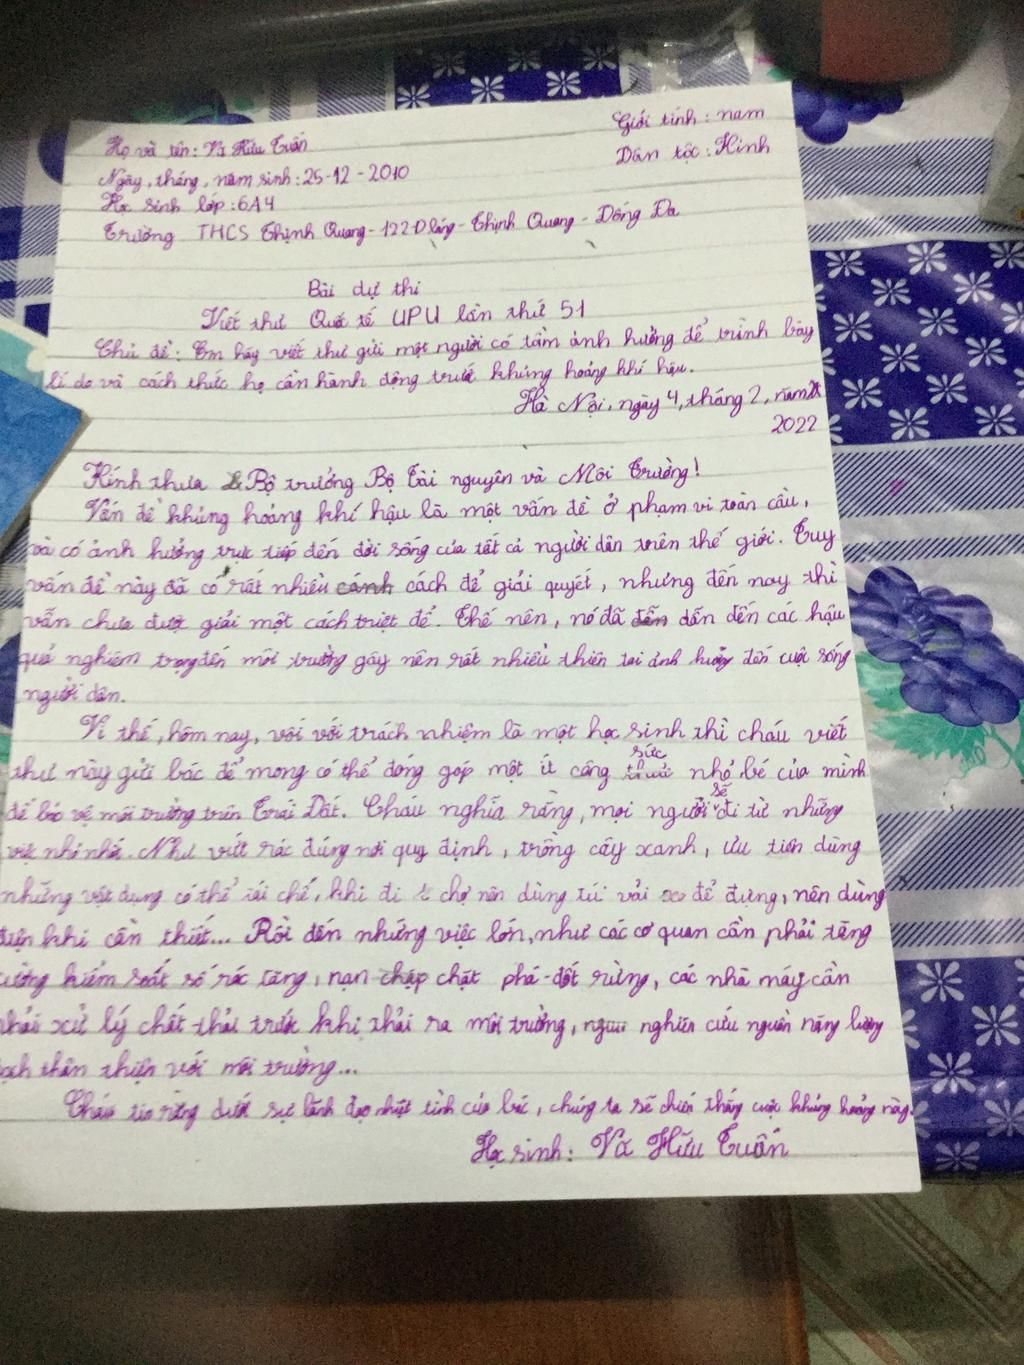 Họ và tên: Vă Hữu Tuấn
Giới tính: nam
Ngày, tháng, năm sinh: 25-12-2010
Dân tộc: Kinh
Học sinh lớp: 6A4
Trường THCS Thịnh Quang - 122 Đ láng - Thịnh Quang - Đống Đa
Bài dự thi
Viết thư Quốc tế UPU lần thứ 51
Chủ đề: Em hãy viết thư gửi một người có tầm ảnh hưởng để trình bày
lí do và cách thức họ cần hành động trước khủng hoảng khí hậu.
Hà Nội, ngày 4, tháng 2, năm
2022
Kính thưa Bộ trưởng Bộ Tài nguyên và Môi Trường!
Vấn đề khủng hoảng khí hậu là một vấn đề ở phạm vi toàn cầu,
và có ảnh hưởng trực tiếp đến đời sống của tất cả người dân trên thế giới. Tuy
vấn đề này đã có rất nhiều cánh cách để giải quyết, nhưng đến nay thì
vẫn chưa được giải một cách triệt để. Thế nên, nó đã dẫn dẫn đến các hậu
quả nghiêm trọng đến môi trường gây nên rất nhiều thiên tai ảnh hưởng đến cuộc sống
người dân.
Vì thế, hôm nay, với với trách nhiệm là một học sinh thì cháu viết
thư này gửi bác để mong có thể đóng góp một ít công sức nhỏ bé của mình
để bảo vệ môi trường trên Trái Đất. Cháu nghĩa rằng, mọi người sẽ đi từ những
việc nhỏ nhỏ. Như vứt rác đúng nơi quy định, trồng cây xanh, ưu tiên dùng
những vật dụng có thể tái chế, khi đi chợ nên dùng túi vải để đựng, nên dùng
điện khi cần thiết... Rồi đến những việc lớn, như các cơ quan cần phải tăng
cường kiểm soát số rác tăng, nạn chặt phá-đốt rừng, các nhà máy cần
phải xử lý chất thải trước khi thải ra môi trường, nghiên cứu nguồn năng lượng
sạch thân thiện với môi trường...
Cháu tin rằng dưới sự lãnh đạo nhiệt tình của bác, chúng ta sẽ chiến thắng cuộc khủng hoảng này.
Học sinh: Vă Hữu Tuấn